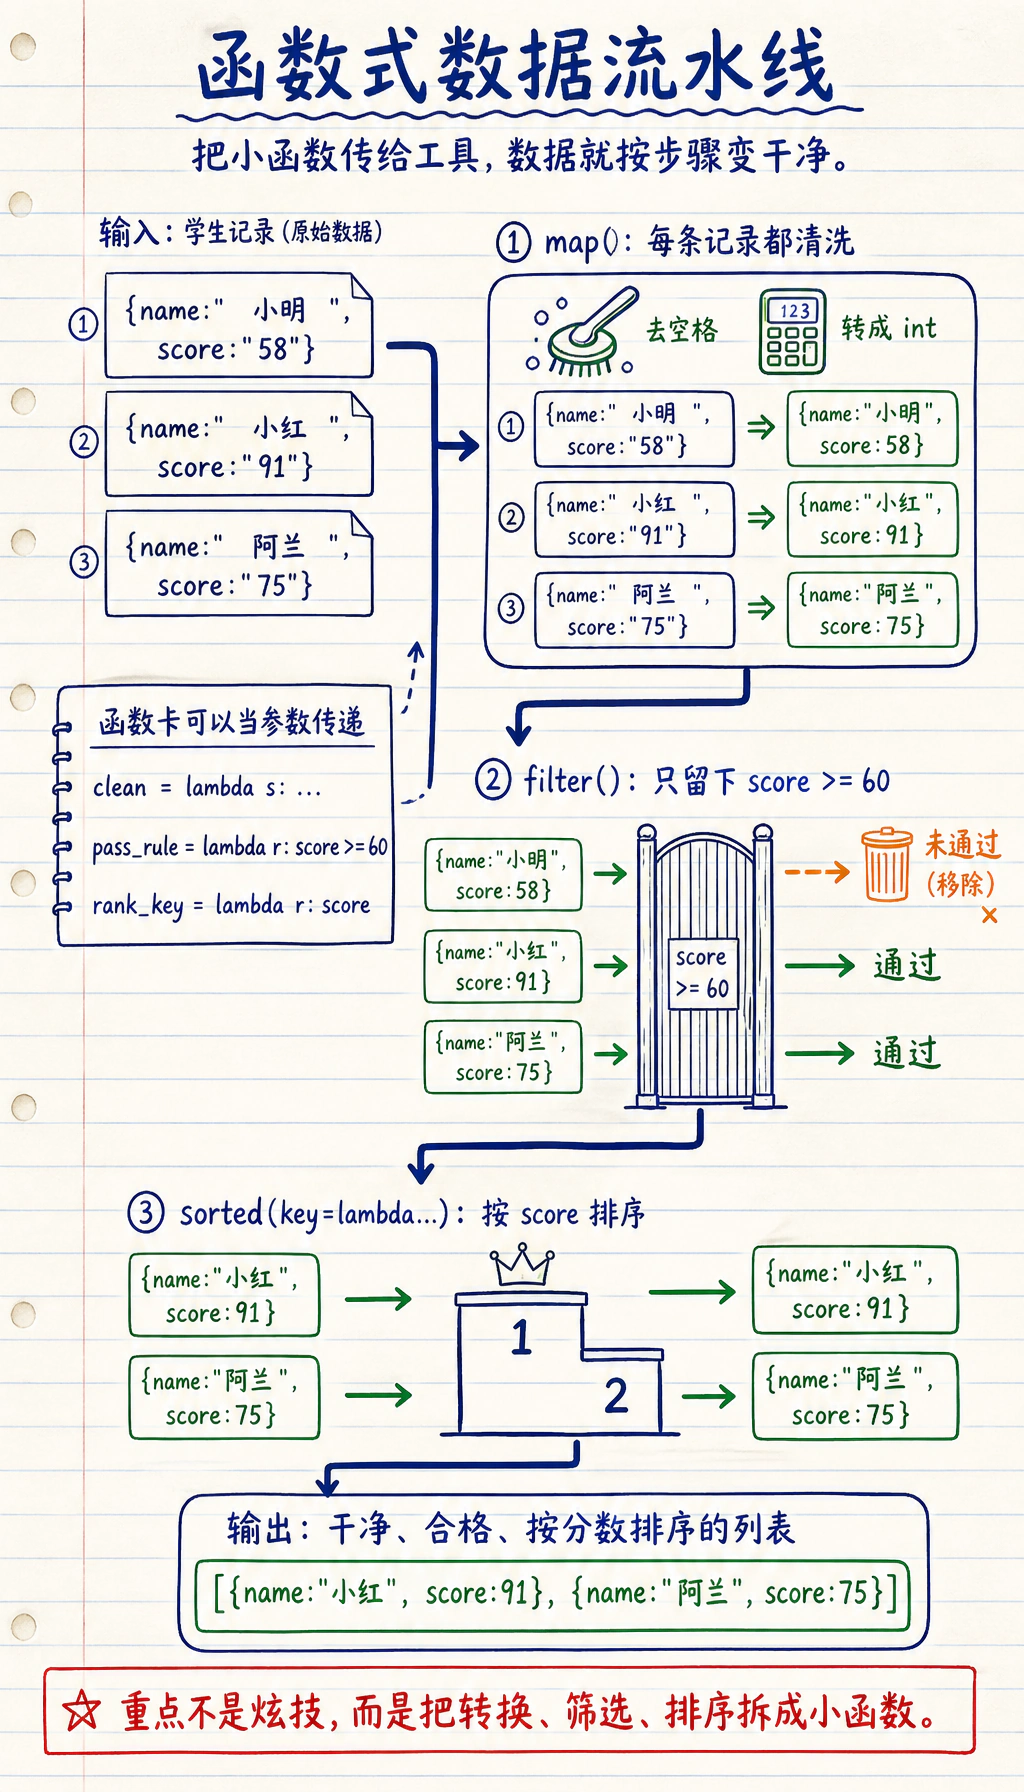 函数式数据流水线
把小函数传给工具，数据就按步骤变干净。
输入：学生记录（原始数据）
① {name:"  小明  ",
score:"58"}
② {name:"  小红  ",
score:"91"}
③ {name:"  阿兰  ",
score:"75"}
函数卡可以当参数传递
clean = lambda s: ...
pass_rule = lambda r: score >=60
rank_key = lambda r: score
① map()：每条记录都清洗
去空格
123
转成 int
① {name:" 小明 ",
score:"58"}
⇒
{name:"小明",
score:58}
② {name:" 小红 ",
score:"91"}
⇒
{name:"小红",
score:91}
③ {name:" 阿兰 ",
score:"75"}
⇒
{name:"阿兰",
score:75}
② filter()：只留下 score >= 60
{name:"小明",
score:58}
{name:"小红",
score:91}
{name:"阿兰",
score:75}
score
>= 60
未通过
（移除）
×
通过
通过
③ sorted(key=lambda...)：按 score 排序
{name:"小红",
score:91}
{name:"阿兰",
score:75}
1
2
{name:"小红",
score:91}
{name:"阿兰",
score:75}
输出：干净、合格、按分数排序的列表
[{name:"小红", score:91}, {name:"阿兰", score:75}]
☆ 重点不是炫技，而是把转换、筛选、排序拆成小函数。